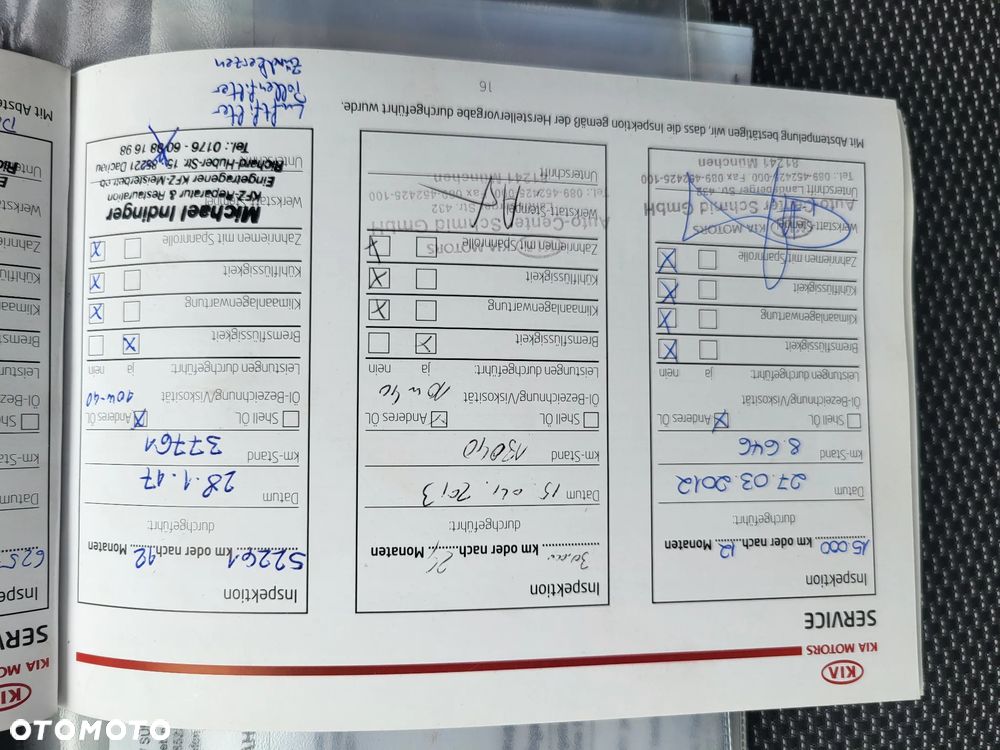 KIA
KIA MOTORS
SERVICE
Inspektion
15.000 km oder nach 12 Monaten
durchgeführt:
Datum 27.03.2012
km-Stand 8.646
Shell ÖL Anderes ÖL
Öl-Bezeichnung/Viskosität
Leistungen durchgeführt: ja nein
Bremsflüssigkeit
Klimaanlagenwartung
Kühlflüssigkeit
Zahnriemen mit Spannrolle
Werkstatt-Stempel
KIA MOTORS
Auto-Center Schmid GmbH
Landsberger Str. 432
Unterschrift
Tel.: 089-452425-000 · Fax 089-452425-100
81241 München
Inspektion
km oder nach 24 Monaten
durchgeführt:
Datum 15.04.2013
km-Stand 13040
Shell ÖL Anderes ÖL
Öl-Bezeichnung/Viskosität 10w40
Leistungen durchgeführt: ja nein
Bremsflüssigkeit
Klimaanlagenwartung
Kühlflüssigkeit
Zahnriemen mit Spannrolle
KIA MOTORS
Auto-Center Schmid GmbH
Werkstatt-Stempel
Landsberger Str. 432
Tel.: 089-452425-000 · Fax 089-452425-100
81241 München
Unterschrift
Inspektion
52261 km oder nach 12 Monaten
durchgeführt:
Datum 28.1.17
km-Stand 37761
Shell ÖL Anderes ÖL
Öl-Bezeichnung/Viskosität 10w-40
Leistungen durchgeführt: ja nein
Bremsflüssigkeit
Klimaanlagenwartung
Kühlflüssigkeit
Zahnriemen mit Spannrolle
Michael Indinger
KFZ-Reparatur & Restauration
Eingetragener KFZ-Meisterbetrieb
Richard-Huber-Str. 15, 85221 Dachau
Tel.: 0176 - 60 98 16 98
Luftfilter
Pollenfilter
Zündkerzen
Mit Abstempelung bestätigen wir, dass die Inspektion gemäß der Herstellervorgabe durchgeführt wurde.
16
KIA
KIA MOTORS
SERV
Inspe
Datum
km-Stand
Shell
Öl-Bezeich
Leistun
Bremsfl
Klimaa
Kühlflü
Zahnrie
Werksta
Unters
Mit Abste
OTOMOTO